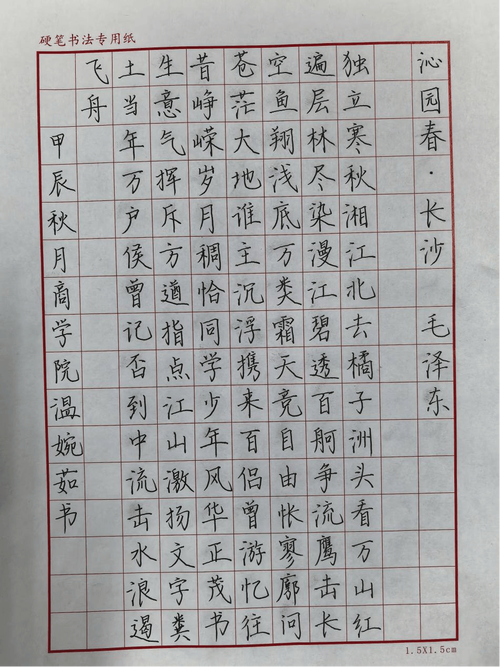 硬笔书法专用纸
沁园春·长沙 毛泽东
独立寒秋湘江北去橘子洲头看万山红
遍层林尽染漫江碧透百舸争流鹰击长
空鱼翔浅底万类霜天竞自由怅寥廓问
苍茫大地谁主沉浮携来百侣曾游忆往
昔峥嵘岁月稠恰同学少年风华正茂书
生意气挥斥方遒指点江山激扬文字粪
土当年万户侯曾记否到中流击水浪遏
飞舟
甲辰秋月商学院温婉茹书
1.5X1.5cm